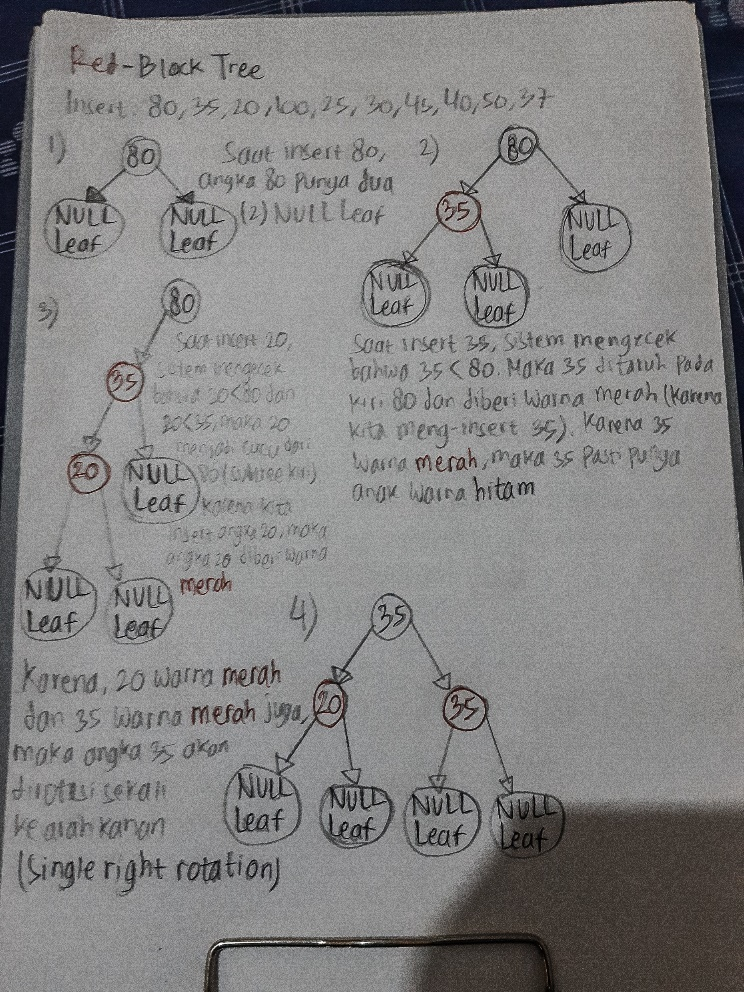 Red-Black Tree
Insert: 80, 35, 20, 100, 25, 30, 45, 40, 50, 37
1)
80
NULL
Leaf
NULL
Leaf
Saat insert 80,
angka 80 punya dua
(2) NULL Leaf
2)
80
35
NULL
Leaf
NULL
Leaf
NULL
Leaf
Saat insert 35, sistem mengecek
bahwa 35 < 80. Maka 35 ditaruh pada
kiri 80 dan diberi warna merah (karena
kita meng-insert 35). Karena 35
warna merah, maka 35 pasti punya
anak warna hitam
3)
80
35
20
NULL
Leaf
NULL
Leaf
NULL
Leaf
Saat insert 20,
sistem mengecek
bahwa 20<80 dan
20<35, maka 20
menjadi cucu dari
80 (subtree kiri).
Karena kita
insert angka 20, maka
angka 20 diberi warna
merah
Karena, 20 warna merah
dan 35 warna merah juga,
maka angka 35 akan
dirotasi sekali
ke arah kanan
(Single right rotation)
4)
35
20
35
NULL
Leaf
NULL
Leaf
NULL
Leaf
NULL
Leaf